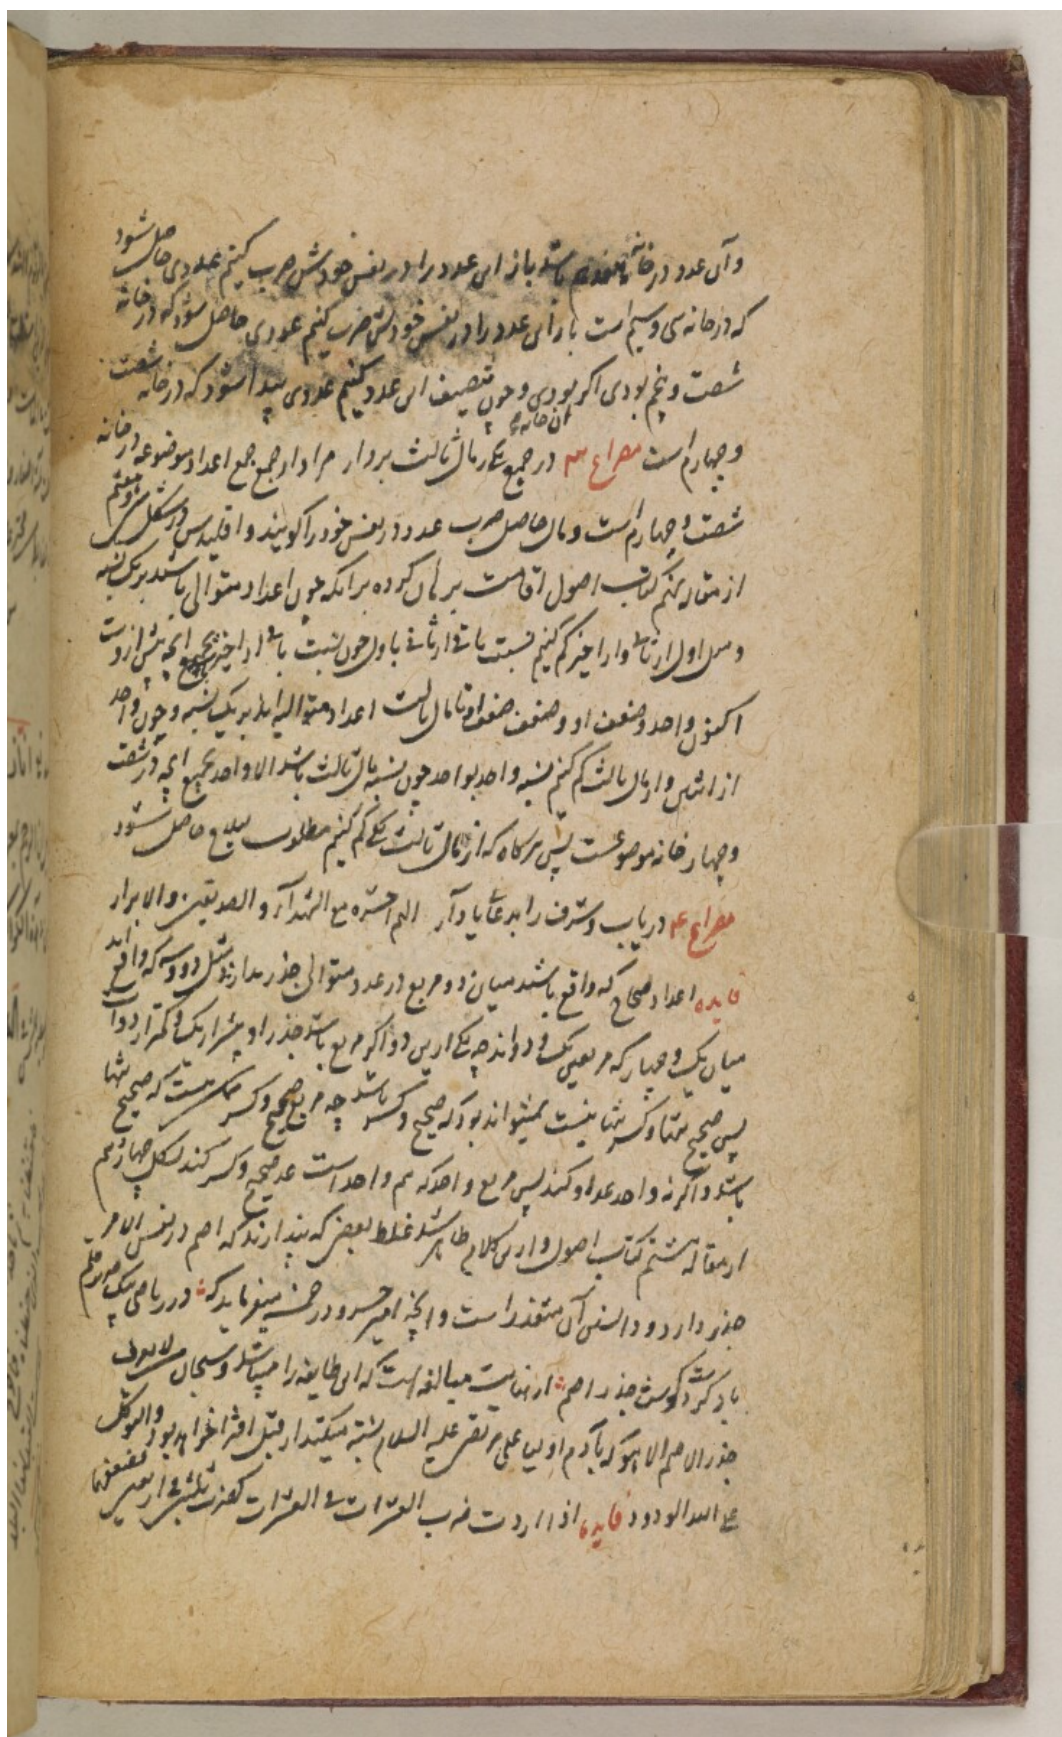 و آن عدد در خانه هفدهم باشد باز این عدد را در نفس خودش ضرب کنیم عددی حاصل شود
که در خانه سی و سیم است باز این عدد را در نفس خودش ضرب کنیم عددی حاصل شود که در خانه
شصت و پنجم بودی اگر بودی و چون تنصیف این عدد کنیم عددی پیدا شود که در خانه شصت
آن خانه
و چهارم است مصراع ۳ در جمع یکی ز مال ثالث بردار مراد از جمع جمع اعداد موضوعه در خانه
شصت و چهارم است و مال حاصل ضرب عدد در نفس خود را گویند و اقلیدس در شکل
از مقاله نهم کتاب اصول اقامت برهان کرده برانکه چون اعداد متوالی باشد بر یک نسبه
و مثل اول از ثانی و از اخیر کم کنیم نسبت باقی از ثانی باول چون نسبت باقی از اخیر بجمیع آنچه پیش ازوست
اکنون واحد و ضعف او و ضعف ضعف او تا مال ثالث اعداد متوالیه اند بر یک نسبه و چون واحد
از اثنین و از مال ثالث کم کنیم نسبه واحد بواحد چون نسبه مال ثالث باشد الا واحد بجمیع آنچه در شصت
و چهار خانه موضوعست پس هرگاه که از مال ثالث یکی کم کنیم مطلوب حاصل شود
مصراع ۴ دریاب و شرف را بدعائی یاد آر اللهم احشره مع الشهداء و الصدیقین و الابرار
فایده اعداد صحاح که واقع باشند میان دو مربع در عدد متوالی جذر ندارند مثل دو و سه که واقع اند
میان یک و چهار که مربعین یک و دو اند چه یکی ازین دو اگر مربع باشد جذر او بیشتر از یک و کمتر از دو است
پس صحیح تنها و کسر تنها نیست نمیتواند بود که صحیح و کسر باشد چه مربع صحیح و کسر ممکن نیست که صحیح تنها
باشد و اگر نه واحد عد او کند پس مربع واحد که هم واحد است عد صحیح و کسر کند بشکل چهاردهم
از مقاله هشتم کتاب اصول و ازین کلام ظاهر شد غلط بعضی که پندارند که اصم در نفس الامر
جذر دارد و دانستن آن متعذر است و آنچه امیر خسرو در خمسه میفرماید که در ریاضی بیک
جذر اصم از نهایت مبالغه است که این طایفه را میباشد و سبحان من لا یعرف
جذر الاصم الا هو که بآدم اولیا علی مرتضی علیه السلام نسبه میکنند از قبیل افترا خواهد بود و التوکل
علی الله الودود فایده اذا اردت ضرب العشرات فی العشرات کضرب ثلثین فی اربعین